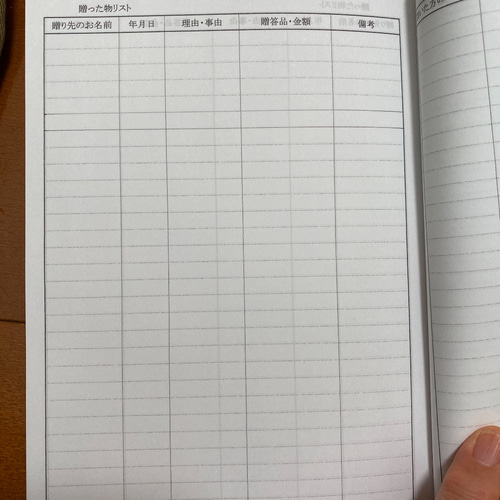 贈った物リスト
贈り先のお名前 年月日 理由・事由 贈答品・金額 備考